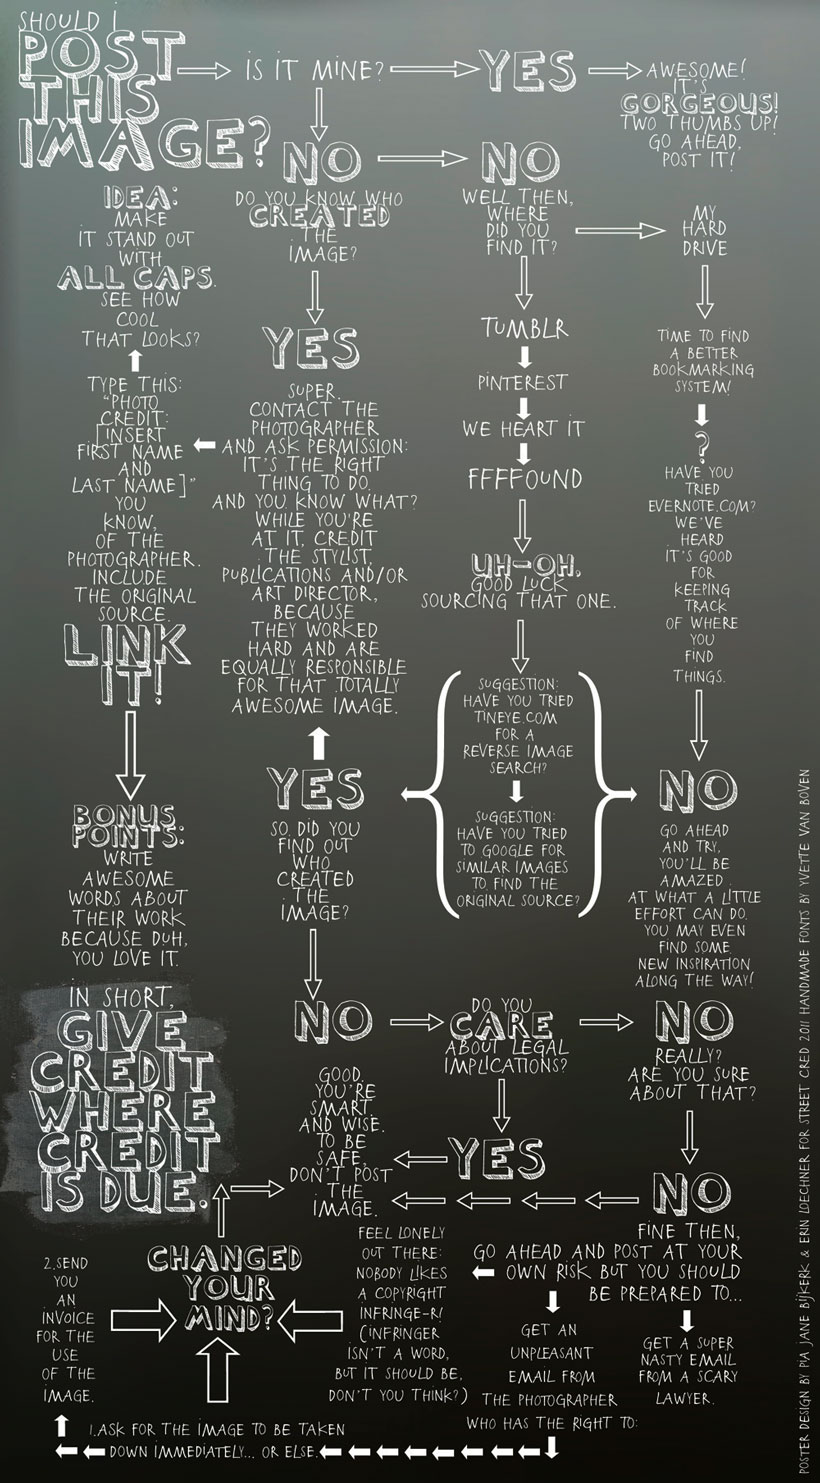 SHOULD I
POST
THIS
IMAGE?
IS IT MINE?
YES
AWESOME!
IT'S
GORGEOUS!
TWO THUMBS UP!
GO AHEAD,
POST IT!
NO
DO YOU KNOW WHO
CREATED
THE
IMAGE?
NO
WELL THEN,
WHERE
DID YOU
FIND IT?
MY
HARD
DRIVE
TIME TO FIND
A BETTER
BOOKMARKING
SYSTEM!
?
HAVE YOU
TRIED
EVERNOTE.COM?
WE'VE
HEARD
IT'S GOOD
FOR
KEEPING
TRACK
OF WHERE
YOU
FIND
THINGS.
TUMBLR
PINTEREST
WE HEART IT
FFFFOUND
UH-OH,
GOOD LUCK
SOURCING THAT ONE.
SUGGESTION:
HAVE YOU TRIED
TINEYE.COM
FOR A
REVERSE IMAGE
SEARCH?
SUGGESTION:
HAVE YOU TRIED
TO GOOGLE FOR
SIMILAR IMAGES
TO FIND THE
ORIGINAL SOURCE?
NO
GO AHEAD
AND TRY.
YOU'LL BE
AMAZED
AT WHAT A LITTLE
EFFORT CAN DO.
YOU MAY EVEN
FIND SOME
NEW INSPIRATION
ALONG THE WAY!
YES
SUPER.
CONTACT THE
PHOTOGRAPHER
AND ASK PERMISSION:
IT'S THE RIGHT
THING TO DO.
AND YOU KNOW WHAT?
WHILE YOU'RE
AT IT, CREDIT
THE STYLIST,
PUBLICATIONS AND/OR
ART DIRECTOR,
BECAUSE
THEY WORKED
HARD AND ARE
EQUALLY RESPONSIBLE
FOR THAT TOTALLY
AWESOME IMAGE.
YES
SO, DID YOU
FIND OUT
WHO
CREATED
THE
IMAGE?
IDEA:
MAKE
IT STAND OUT
WITH
ALL CAPS.
SEE HOW
COOL
THAT LOOKS?
TYPE THIS:
"PHOTO
CREDIT:
[INSERT
FIRST NAME
AND
LAST NAME]"
YOU
KNOW,
OF THE
PHOTOGRAPHER.
INCLUDE
THE ORIGINAL
SOURCE.
LINK
IT!
BONUS
POINTS:
WRITE
AWESOME
WORDS ABOUT
THEIR WORK
BECAUSE DUH,
YOU LOVE IT.
IN SHORT,
GIVE
CREDIT
WHERE
CREDIT
IS DUE.
NO
DO YOU
CARE
ABOUT LEGAL
IMPLICATIONS?
NO
REALLY?
ARE YOU SURE
ABOUT THAT?
YES
GOOD,
YOU'RE
SMART
AND WISE.
TO BE
SAFE,
DON'T POST
THE
IMAGE.
NO
FINE THEN,
GO AHEAD AND POST AT YOUR
OWN RISK BUT YOU SHOULD
BE PREPARED TO...
FEEL LONELY
OUT THERE:
NOBODY LIKES
A COPYRIGHT
INFRINGE-R!
(INFRINGER
ISN'T A WORD,
BUT IT SHOULD BE,
DON'T YOU THINK?)
GET AN
UNPLEASANT
EMAIL FROM
THE PHOTOGRAPHER
WHO HAS THE RIGHT TO:
GET A SUPER
NASTY EMAIL
FROM A SCARY
LAWYER.
1.ASK FOR THE IMAGE TO BE TAKEN
DOWN IMMEDIATELY... OR ELSE.
2.SEND
YOU
AN
INVOICE
FOR THE
USE
OF THE
IMAGE.
CHANGED
YOUR
MIND?
POSTER DESIGN BY PIA JANE BIJKERK & ERIN LOECHNER FOR STREET CRED 2011 HANDMADE FONTS BY YVETTE VAN BOVEN